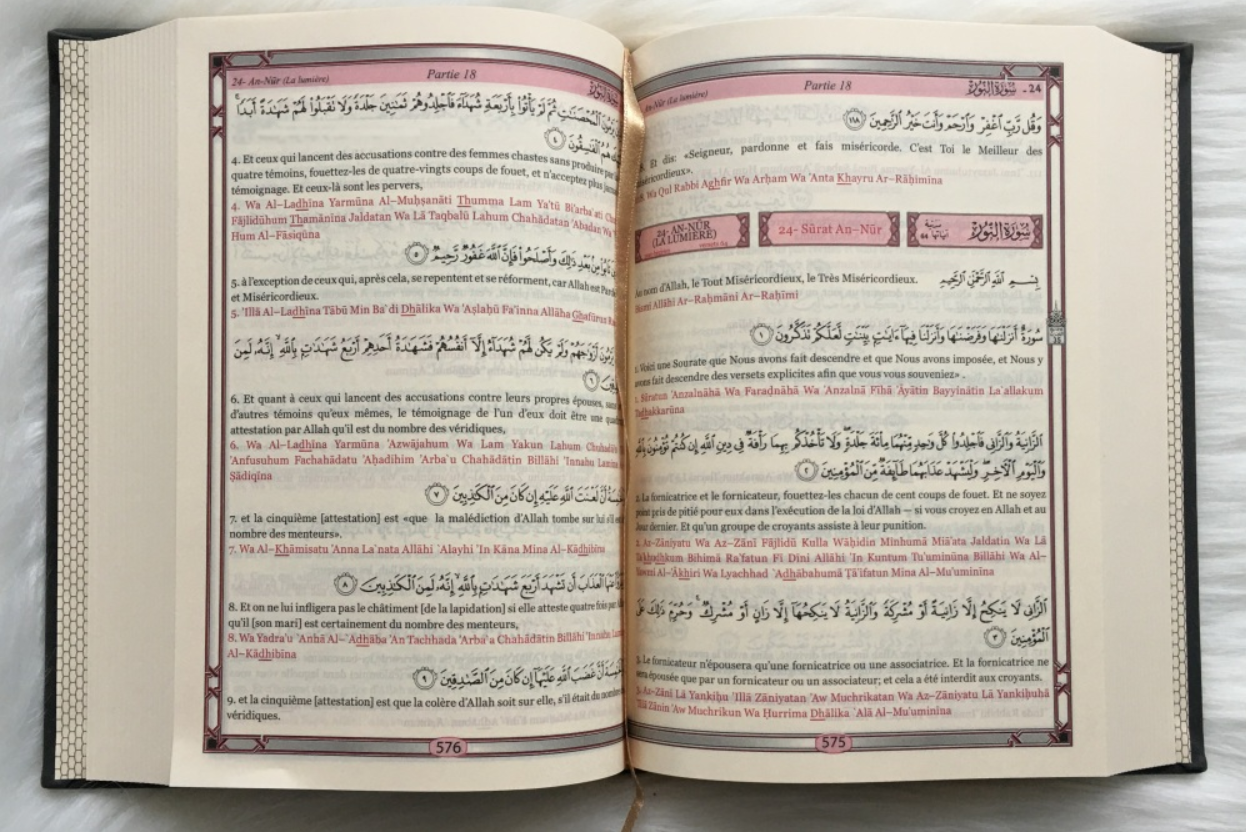 An-Nūr (La lumière)
Partie 18
24 - سُورَةُ النُّورِ
وَقُل رَّبِّ ٱغْفِرْ وَٱرْحَمْ وَأَنتَ خَيْرُ ٱلرَّٰحِمِينَ ١١٨
Et dis: «Seigneur, pardonne et fais miséricorde. C'est Toi le Meilleur des
miséricordieux».
Wa Qul Rabbi Aghfir Wa Arĥam Wa 'Anta Khayru Ar–Rāĥimīna
24- AN-NŪR
(LA LUMIÈRE)
24- Sūrat An–Nūr
سُورَةُ النُّورِ
Au nom d'Allah, le Tout Miséricordieux, le Très Miséricordieux.
بِسْمِ ٱللَّهِ ٱلرَّحْمَٰنِ ٱلرَّحِيمِ
Bismi Allāhi Ar–Raĥmāni Ar–Raĥīmi
سُورَةٌ أَنزَلْنَٰهَا وَفَرَضْنَٰهَا وَأَنزَلْنَا فِيهَآ ءَايَٰتٍۭ بَيِّنَٰتٍ لَّعَلَّكُمْ تَذَكَّرُونَ ١
1. Voici une Sourate que Nous avons fait descendre et que Nous avons imposée, et Nous y
avons fait descendre des versets explicites afin que vous vous souveniez» .
1. Sūratun 'Anzalnāhā Wa Farađnāhā Wa 'Anzalnā Fīhā 'Āyātin Bayyinātin La`allakum
Tadhakkarūna
ٱلزَّانِيَةُ وَٱلزَّانِى فَٱجْلِدُوا۟ كُلَّ وَٰحِدٍ مِّنْهُمَا مِا۟ئَةَ جَلْدَةٍ وَلَا تَأْخُذْكُم بِهِمَا رَأْفَةٌ فِى دِينِ ٱللَّهِ إِن كُنتُمْ تُؤْمِنُونَ بِٱللَّهِ
وَٱلْيَوْمِ ٱلْـَٔاخِرِ وَلْيَشْهَدْ عَذَابَهُمَا طَآئِفَةٌ مِّنَ ٱلْمُؤْمِنِينَ ٢
2. La fornicatrice et le fornicateur, fouettez-les chacun de cent coups de fouet. Et ne soyez
point pris de pitié pour eux dans l'exécution de la loi d'Allah – si vous croyez en Allah et au
Jour dernier. Et qu'un groupe de croyants assiste à leur punition.
2. Az-Zāniyatu Wa Az–Zānī Fājlidū Kulla Wāĥidin Minhumā Miā'ata Jaldatin Wa Lā
Ta'khudhkum Bihimā Ra'fatun Fī Dīni Allāhi 'In Kuntum Tu'uminūna Billāhi Wa Al–
Yawmi Al–'Ākhiri Wa Lyachhad `Adhābahumā Ţā'ifatun Mina Al–Mu'uminīna
ٱلزَّانِى لَا يَنكِحُ إِلَّا زَانِيَةً أَوْ مُشْرِكَةً وَٱلزَّانِيَةُ لَا يَنكِحُهَآ إِلَّا زَانٍ أَوْ مُشْرِكٌ وَحُرِّمَ ذَٰلِكَ عَلَى
ٱلْمُؤْمِنِينَ ٣
3. Le fornicateur n'épousera qu'une fornicatrice ou une associatrice. Et la fornicatrice ne
sera épousée que par un fornicateur ou un associateur; et cela a été interdit aux croyants.
3. Az-Zānī Lā Yankiĥu 'Illā Zāniyatan 'Aw Muchrikatan Wa Az–Zāniyatu Lā Yankiĥuhā
'Illā Zānin 'Aw Muchrikun Wa Ĥurrima Dhālika `Alá Al–Mu'uminīna
575
24- An-Nūr (La lumière)
Partie 18
يَرْمُونَ ٱلْمُحْصَنَٰتِ ثُمَّ لَمْ يَأْتُوا۟ بِأَرْبَعَةِ شُهَدَآءَ فَٱجْلِدُوهُمْ ثَمَٰنِينَ جَلْدَةً وَلَا تَقْبَلُوا۟ لَهُمْ شَهَٰدَةً أَبَدًا
هُمُ ٱلْفَٰسِقُونَ ٤
4. Et ceux qui lancent des accusations contre des femmes chastes sans produire par
quatre témoins, fouettez-les de quatre-vingts coups de fouet, et n'acceptez plus jamais
témoignage. Et ceux-là sont les pervers,
4. Wa Al–Ladhīna Yarmūna Al–Muĥşanāti Thumma Lam Ya'tū Bi'arba`ati
Fājlidūhum Thamānīna Jaldatan Wa Lā Taqbalū Lahum Chahādatan 'Abadan Wa
Hum Al–Fāsiqūna
تَابُوا۟ مِنۢ بَعْدِ ذَٰلِكَ وَأَصْلَحُوا۟ فَإِنَّ ٱللَّهَ غَفُورٌ رَّحِيمٌ ٥
5. à l'exception de ceux qui, après cela, se repentent et se réforment, car Allah est
et Miséricordieux.
5. 'Illā Al–Ladhīna Tābū Min Ba`di Dhālika Wa 'Aşlaĥū Fa'inna Allāha Ghafūrun
يَرْمُونَ أَزْوَٰجَهُمْ وَلَمْ يَكُن لَّهُمْ شُهَدَآءُ إِلَّآ أَنفُسُهُمْ فَشَهَٰدَةُ أَحَدِهِمْ أَرْبَعُ شَهَٰدَٰتٍۭ بِٱللَّهِ إِنَّهُۥ لَمِنَ
٦
6. Et quant à ceux qui lancent des accusations contre leurs propres épouses, sans
d'autres témoins qu'eux mêmes, le témoignage de l'un d'eux doit être une
attestation par Allah qu'il est du nombre des véridiques,
6. Wa Al–Ladhīna Yarmūna 'Azwājahum Wa Lam Yakun Lahum Chuhadā'u
'Anfusuhum Fachahādatu 'Aĥadihim 'Arba`u Chahādātin Billāhi 'Innahu Lamina
Şādiqīna
أَنَّ لَعْنَتَ ٱللَّهِ عَلَيْهِ إِن كَانَ مِنَ ٱلْكَٰذِبِينَ ٧
7. et la cinquième [attestation] est «que la malédiction d'Allah tombe sur lui s'il est
nombre des menteurs».
7. Wa Al–Khāmisatu 'Anna La`nata Allāhi `Alayhi 'In Kāna Mina Al–Kādhibīna
عَنْهَا ٱلْعَذَابَ أَن تَشْهَدَ أَرْبَعَ شَهَٰدَٰتٍۭ بِٱللَّهِ إِنَّهُۥ لَمِنَ ٱلْكَٰذِبِينَ ٨
8. Et on ne lui infligera pas le châtiment [de la lapidation] si elle atteste quatre fois par
qu'il [son mari] est certainement du nombre des menteurs,
8. Wa Yadra'u `Anhā Al–`Adhāba 'An Tachhada 'Arba`a Chahādātin Billāhi 'Innahu
Al–Kādhibīna
أَنَّ غَضَبَ ٱللَّهِ عَلَيْهَآ إِن كَانَ مِنَ ٱلصَّٰدِقِينَ ٩
9. et la cinquième [attestation] est que la colère d'Allah soit sur elle, s'il était du
véridiques.
576